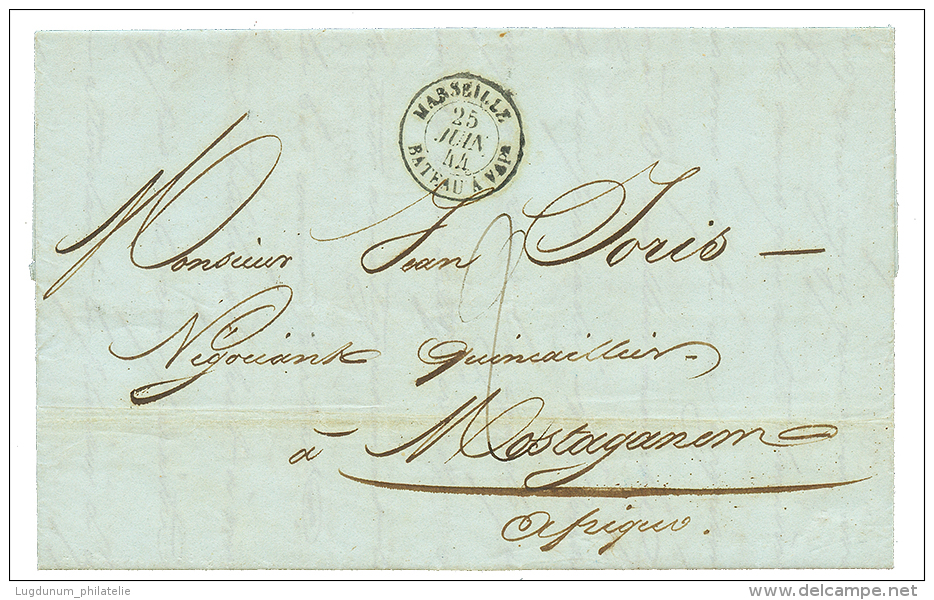 MARSEILLE
25
JUIN
44
BATEAU À VAPR
Monsieur Jean Joris —
Négociant Quincaillier
à Mostaganem
Afrique.
Lugdunum_philatelie
delcampe.net